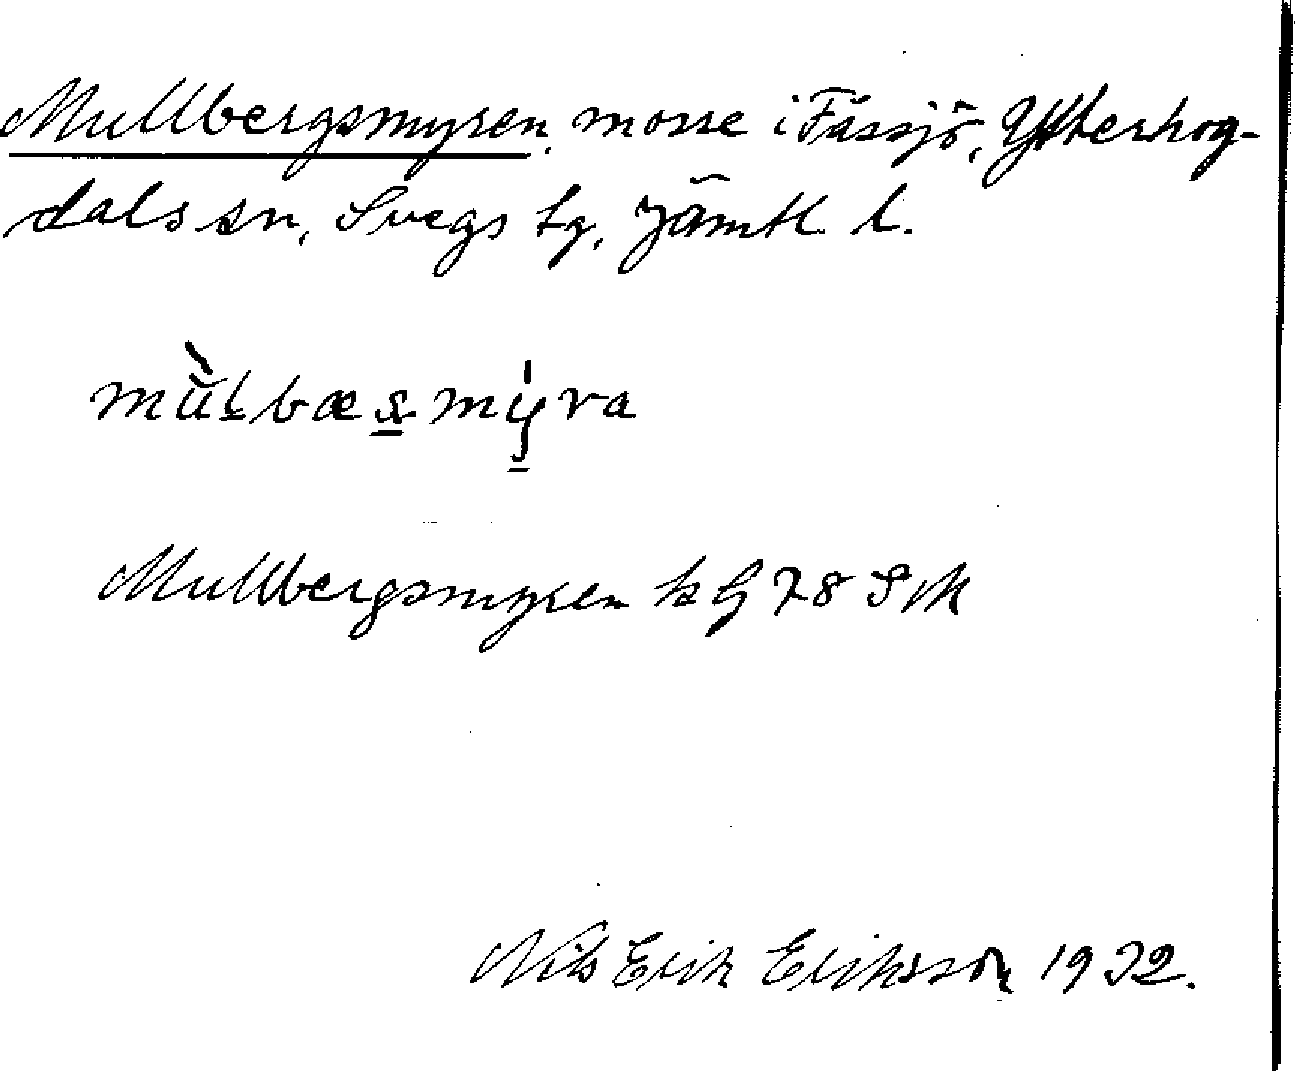 Mullbergsmyren, mosse i Fåssjö, Ytterhog-
dals sn, Svegs tg, Jämtl. l.
mùlbæsmyra
Mullbergsmyren k G 78 S Mk
Nils Erik Eriksson 1932.